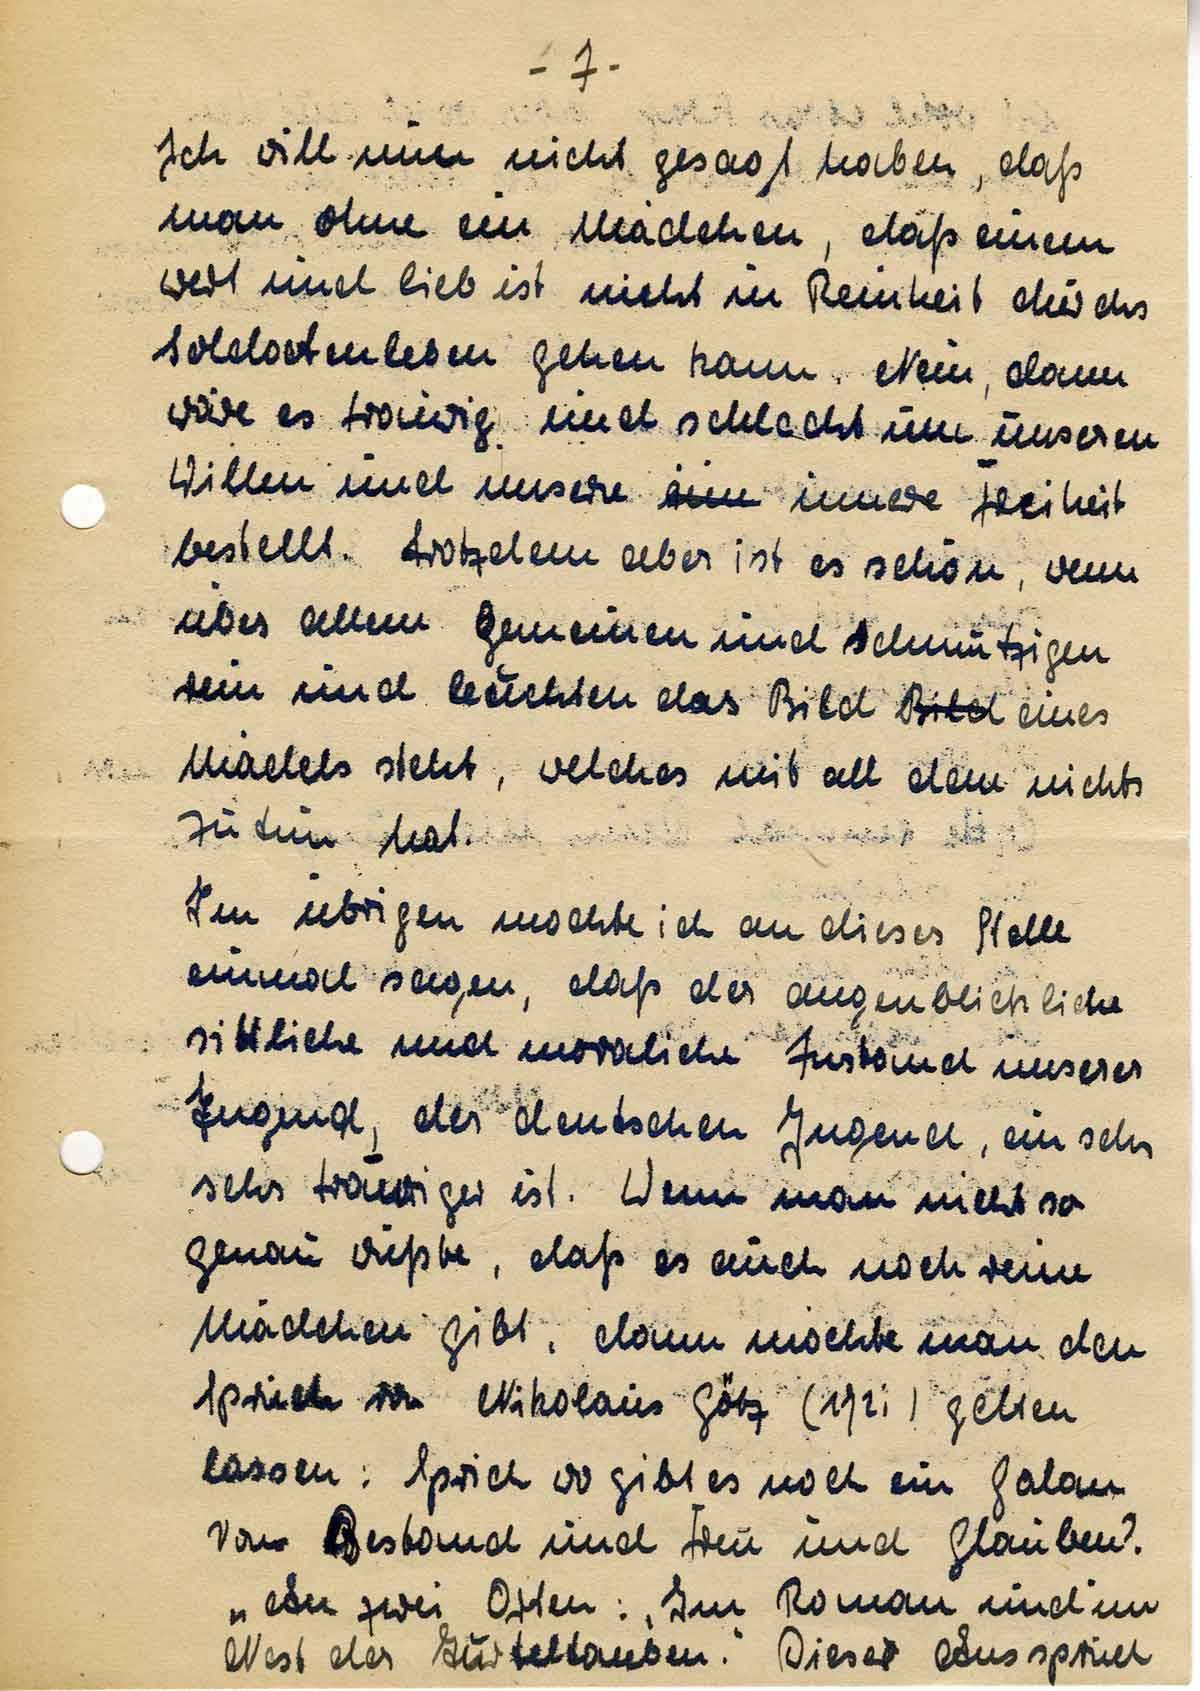 - 7 -
Ich will nun nicht gesagt haben, daß
man ohne ein Mädchen, daß einem
wert und lieb ist nicht in Reinheit durchs
Soldatenleben gehen kann. Nein, dann
wäre es traurig und schlecht um unseren
Willen und unsere inn innere Freiheit
bestellt. Trotzdem aber ist es schön, wenn
über allem Gemeinen und Schmutzigen
rein und leuchten das Bild Bild eines
Mädels steht, welches mit all dem nichts
zu tun hat.
Im übrigen mochte ich an dieser Stelle
einmal sagen, daß der augenblickliche
sittliche und moraliche Zustand unserer
Jugend, der deutschen Jugend, ein sehr
sehr trauriger ist. Wenn man nicht so
genau wüßte, daß es auch noch reine
Mädchen gibt, dann möchte man den
Spruch von Nikolaus Götz (1721) gelten
lassen: Sprich wo gibt es noch ein Galan
von Bestand und Treu und Glauben?
„An zwei Orten: „Im Roman und im
Nest der Turteltauben." Dieser Ausspruch